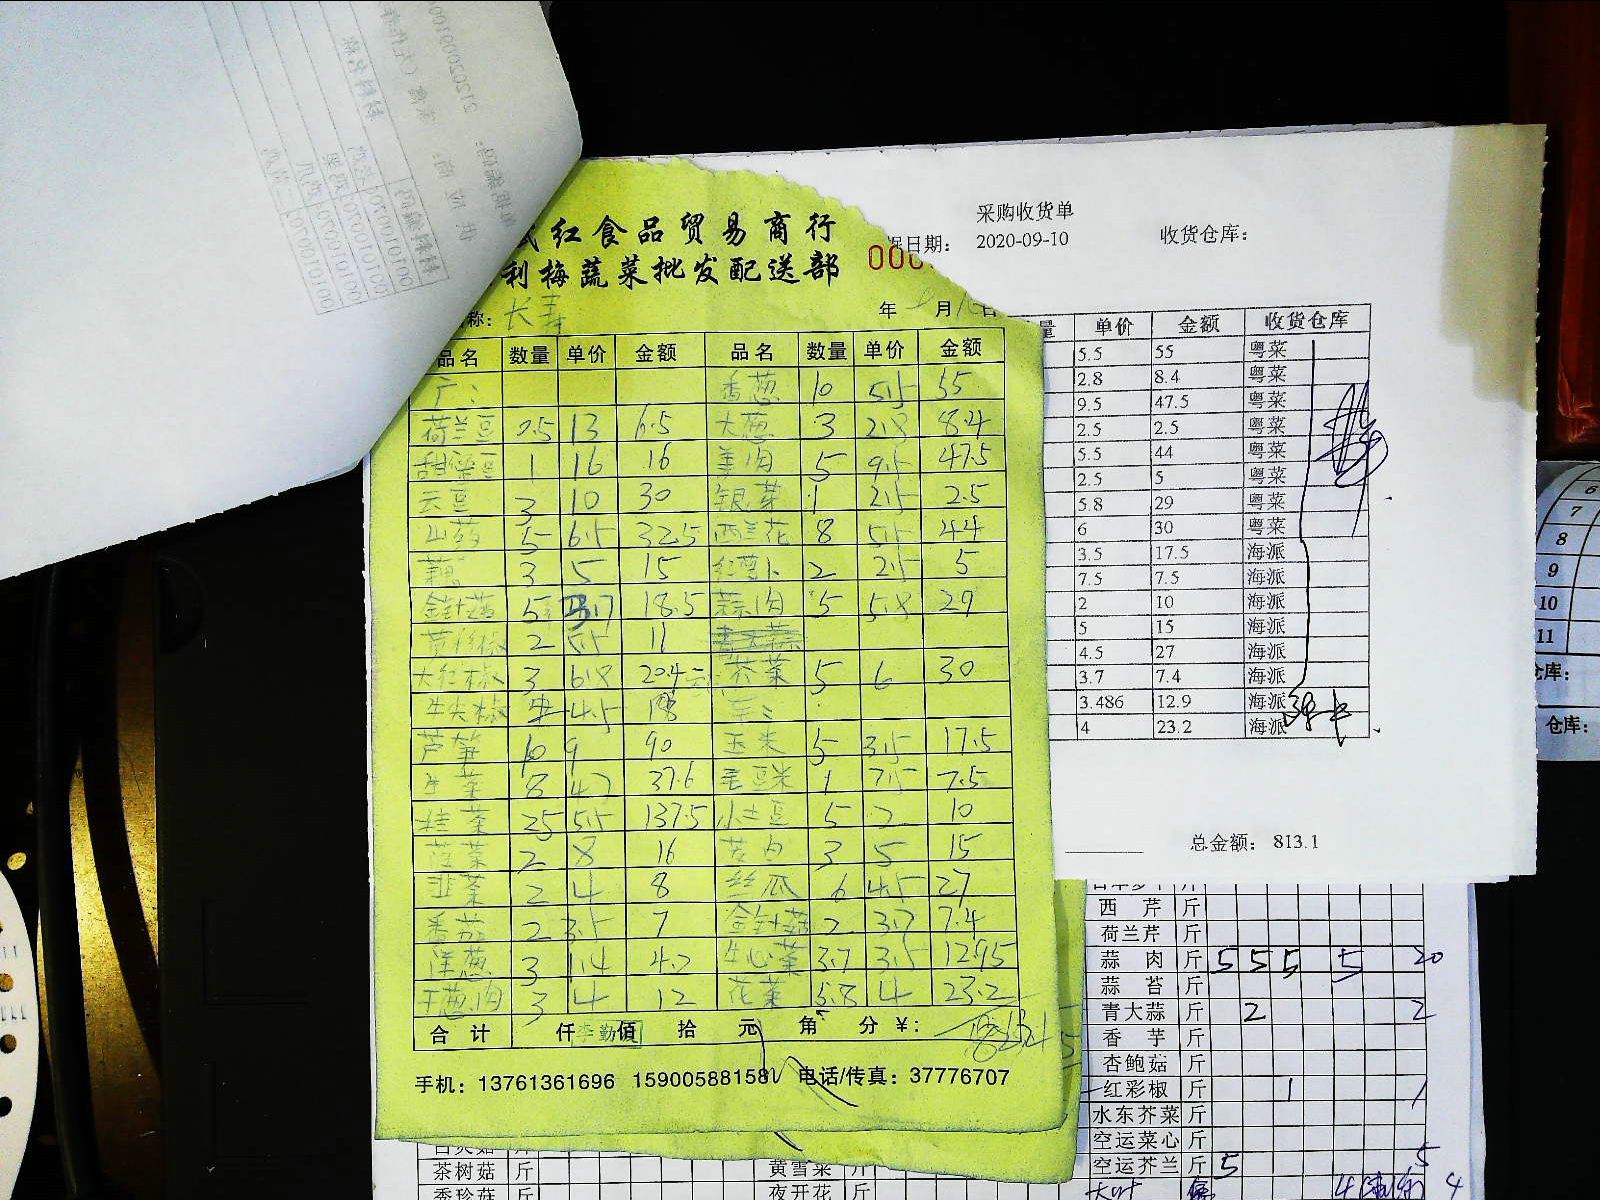 红食品贸易商行
利梅蔬菜批发配送部
000
称: 长寿
年 9 月 10 日
品名 数量 单价 金额 品名 数量 单价 金额
广: 香葱 10 5.5 55
荷兰豆 0.5 13 6.5 大葱 3 2.8 8.4
甜蜜豆 1 16 16 姜肉 5 9.5 47.5
云豆 3 10 30 银芽 1 2.5 2.5
山药 5 6.5 32.5 西兰花 8 5.5 44
藕 3 5 15 红萝卜 2 2.5 5
金针菇 5 3.7 18.5 蒜肉 5 5.8 29
黄彩椒 2 5.5 11
大红椒 3 6.8 20.4 5 6 30
牛尖椒 4 4.5 18
芦笋 10 9 90 玉米 5 3.5 17.5
生菜 8 4.7 37.6 毛豆米 1 7.5 7.5
25 5.5 137.5 小土豆 5 2 10
菠菜 2 8 16 茭白 3 5 15
韭菜 2 4 8 丝瓜 6 4.5 27
番茄 2 3.5 7 金针菇 2 3.7 7.4
洋葱 3 1.4 4.2 牛心菜 3.7 3.5 12.95
干葱肉 3 4 12 花菜 5.8 4 23.2
合计 仟 李勤 佰 拾 元 角 分 ¥:
手机: 13761361696 15900588158 电话/传真: 37776707
采购收货单
日期: 2020-09-10 收货仓库:
量 单价 金额 收货仓库
5.5 55 粤菜
2.8 8.4 粤菜
9.5 47.5 粤菜
2.5 2.5 粤菜
5.5 44 粤菜
2.5 5 粤菜
5.8 29 粤菜
6 30 粤菜
3.5 17.5 海派
7.5 7.5 海派
2 10 海派
5 15 海派
4.5 27 海派
3.7 7.4 海派
3.486 12.9 海派
4 23.2 海派
总金额: 813.1
西芹 斤
荷兰芹 斤
蒜肉 斤 5 5 5 5 20
蒜苔 斤
青大蒜 斤 2 2
香芋 斤
杏鲍菇 斤
红彩椒 斤 1 1
水东芥菜 斤
空运菜心 斤
空运芥兰 斤 5 5
茶树菇 斤
黄雪菜 斤
秀珍菇 斤
夜开花 斤
6
7
8
9
10
11
仓库:
仓库: